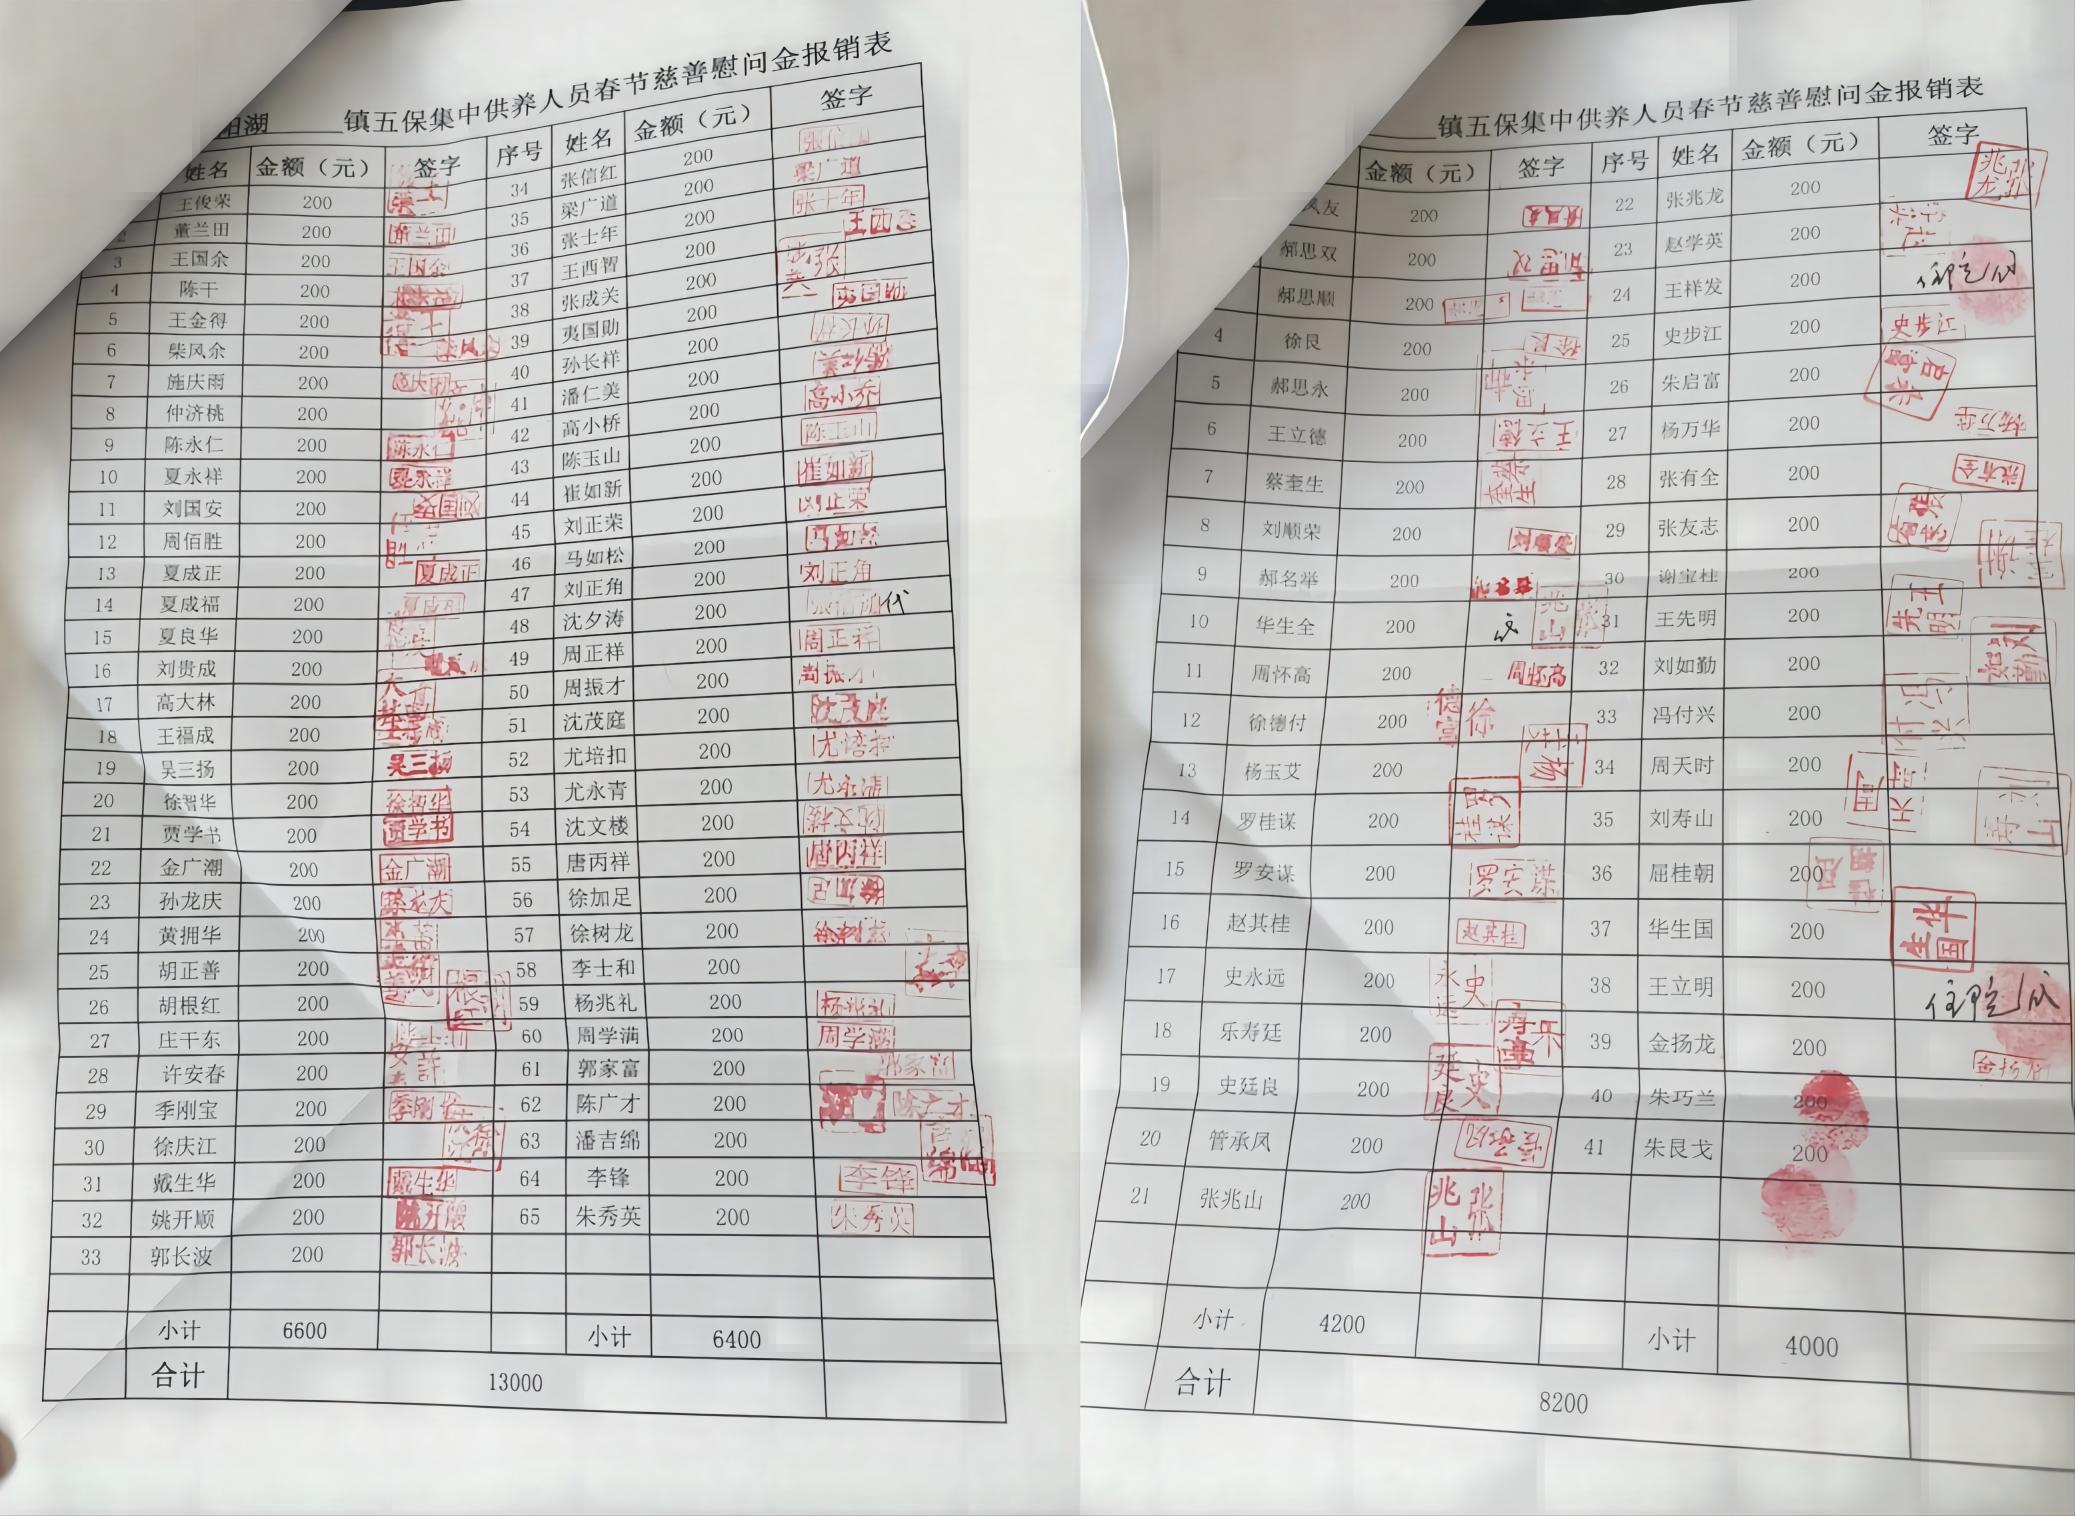 湖 镇五保集中供养人员春节慈善慰问金报销表
姓名 金额（元） 签字 序号 姓名 金额（元） 签字
王俊荣 200 34 张信红 200
2 董兰田 200 董兰田 35 梁广道 200 梁广道
3 王国余 200 王国余 36 张士年 200 张士年
4 陈干 200 37 王西智 200
5 王金得 200 38 张成关 200
6 柴凤余 200 39 夷国勋 200
7 施庆雨 200 40 孙长祥 200 孙长祥
8 仲济桃 200 41 潘仁美 200 潘仁美
9 陈永仁 200 陈永仁 42 高小桥 200 高小乔
10 夏永祥 200 43 陈玉山 200 陈玉山
11 刘国安 200 44 崔如新 200 崔如新
12 周佰胜 200 45 刘正荣 200 刘正荣
13 夏成正 200 夏成正 46 马如松 200
14 夏成福 200 47 刘正角 200 刘正角
15 夏良华 200 48 沈夕涛 200 代
16 刘贵成 200 49 周正祥 200 周正祥
17 高大林 200 50 周振才 200 周振才
18 王福成 200 51 沈茂庭 200
19 吴三扬 200 吴三扬 52 尤培扣 200 尤培扣
20 徐智华 200 徐智华 53 尤永青 200 尤永清
21 贾学书 200 贾学书 54 沈文楼 200 沈文楼
22 金广潮 200 金广潮 55 唐丙祥 200
23 孙龙庆 200 孙龙庆 56 徐加足 200 徐加足
24 黄拥华 200 57 徐树龙 200
25 胡正善 200 58 李士和 200
26 胡根红 200 胡根红 59 杨兆礼 200 杨兆礼
27 庄干东 200 60 周学满 200 周学满
28 许安春 200 许安春 61 郭家富 200 郭家富
29 季刚宝 200 62 陈广才 200 陈广才
30 徐庆江 200 63 潘吉绵 200
31 戴生华 200 戴生华 64 李锋 200 李锋
32 姚开顺 200 姚开顺 65 朱秀英 200 朱秀英
33 郭长波 200 郭长波
小计 6600 小计 6400
合计 13000
镇五保集中供养人员春节慈善慰问金报销表
金额（元） 签字 序号 姓名 金额（元） 签字
凤友 200 22 张兆龙 200 张兆龙
郝思双 200 郝思双 23 赵学英 200
郝思顺 200 24 王祥发 200 住院
4 徐艮 200 徐艮 25 史步江 200 史步江
5 郝思永 200 郝思永 26 朱启富 200 朱启富
6 王立德 200 王立德 27 杨万华 200 杨万华
7 蔡奎生 200 蔡奎生 28 张有全 200 张有全
8 刘顺荣 200 刘顺荣 29 张友志 200
9 郝名举 200 30 谢宝桂 200 谢宝桂
10 华生全 200 31 王先明 200 王先明
11 周怀高 200 周怀高 32 刘如勤 200
12 徐德付 200 徐德富 33 冯付兴 200 冯付兴
13 杨玉艾 200 34 周天时 200 周天时
14 罗桂谋 200 罗桂谋 35 刘寿山 200 刘寿山
15 罗安谋 200 罗安谋 36 屈桂朝 200 屈桂朝
16 赵其桂 200 赵其桂 37 华生国 200 华生国
17 史永远 200 史永远 38 王立明 200 住院
18 乐寿廷 200 39 金扬龙 200 金扬龙
19 史廷良 200 史廷良 40 朱巧兰 200
20 管承凤 200 管承凤 41 朱艮戈 200
21 张兆山 200 张兆山
小计 4200 小计 4000
合计 8200